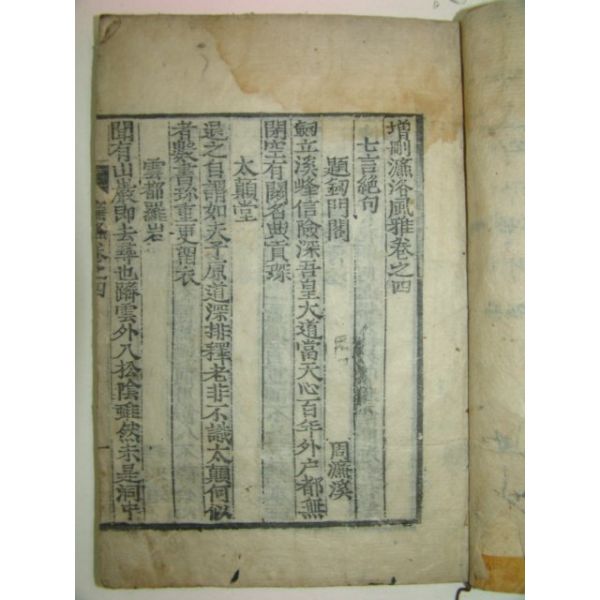 增刪濂洛風雅卷之四
七言絶句
題劒門閣 周濂溪
劒立溪峰信險深吾皇大道當天心百年外户都無
閉空有關名典貢琛
太顚堂
退之自謂如夫子原道深排釋老非不識太顚何似
者數書珍重更留衣
雲都羅岩
聞有山巖即去尋也躋雲外入松陰雖然未是洞中
卷之四